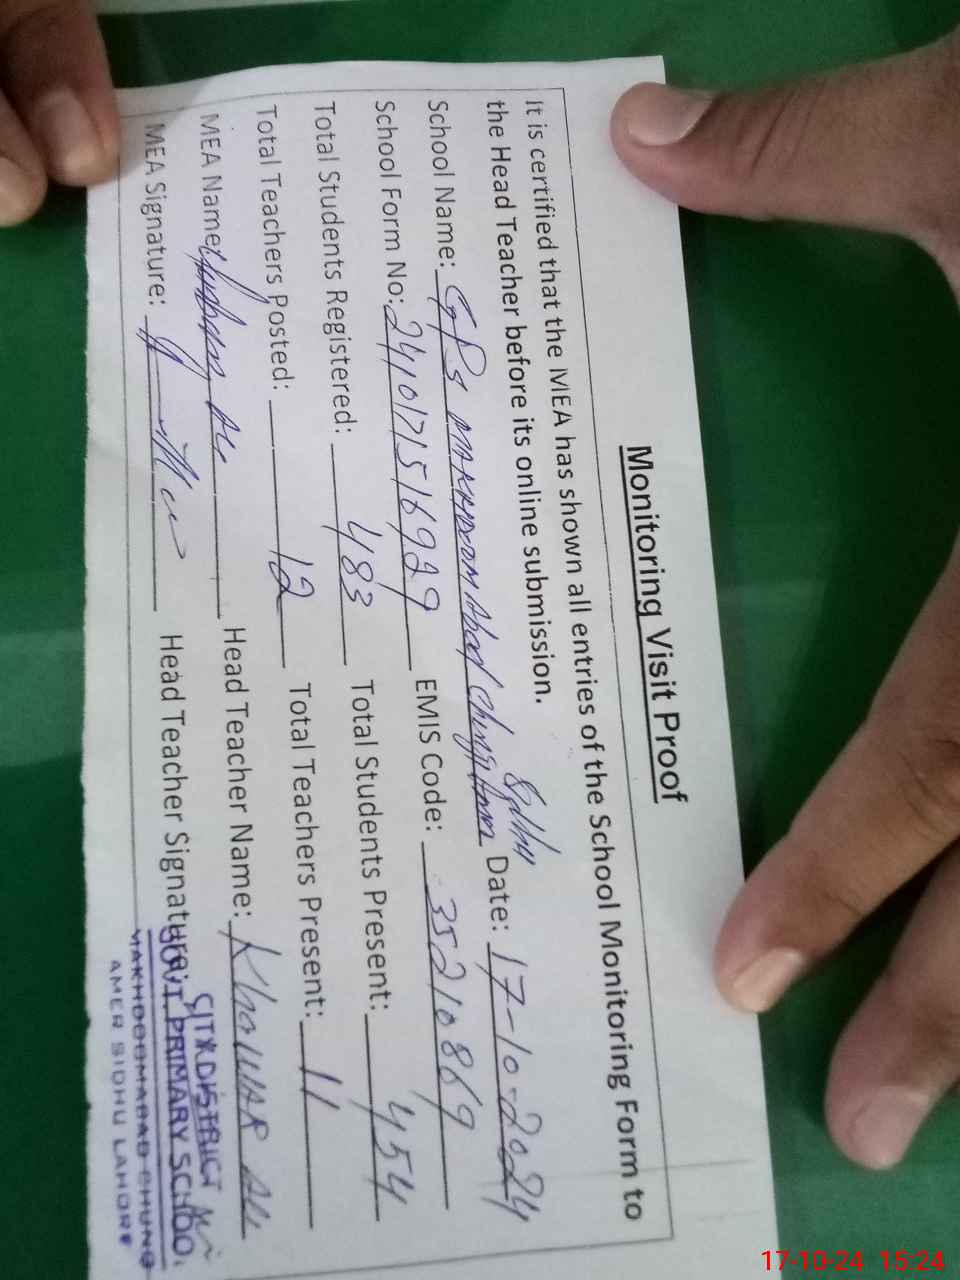 Monitoring Visit Proof
It is certified that the MEA has shown all entries of the School Monitoring Form to
the Head Teacher before its online submission.
School Name: GPS MAKHDOOM Abad Sidhu Date: 17-10-2024
School Form No: EMIS Code: 35210869
Total Students Registered: 483 Total Students Present: 454
Total Teachers Posted: 12 Total Teachers Present: 11
MEA Name: Ali Head Teacher Name: Khawar Ali
MEA Signature: Head Teacher Signature:
CITY DISTRICT
GOVT. PRIMARY SCHOOL
MAKHDOOMABAD CHUNG
AMER SIDHU LAHORE
17-10-24 15:24